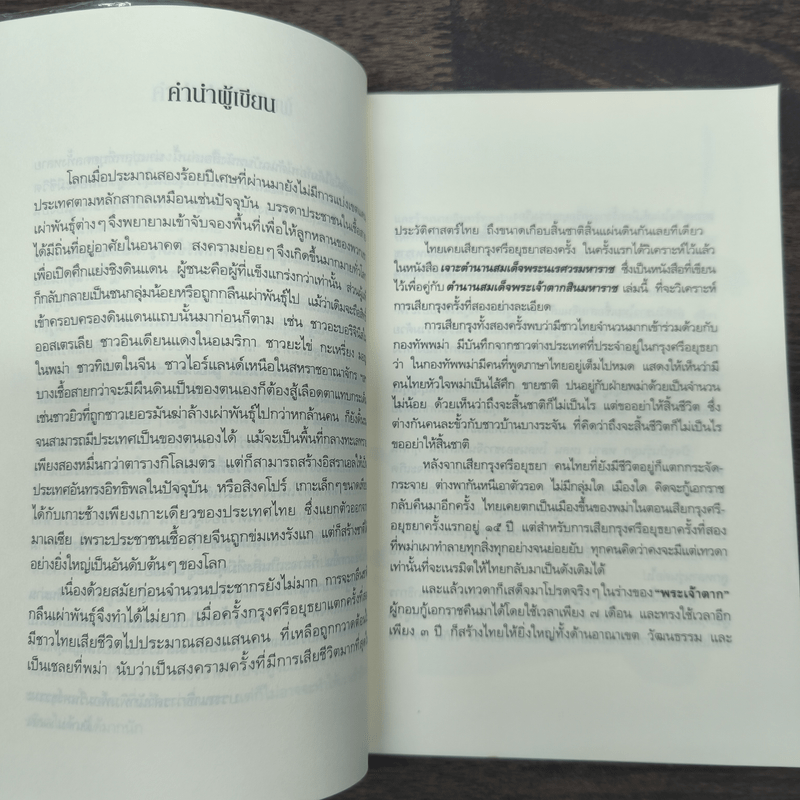 คำนำผู้เขียน
โลกเมื่อประมาณสองร้อยปีเศษที่ผ่านมายังไม่มีการแบ่งเขตแดน
ประเทศตามหลักสากลเหมือนเช่นปัจจุบัน บรรดาประชาชนในเชื้อ
เผ่าพันธุ์ต่างๆ จึงพยายามเข้าจับจองพื้นที่เพื่อให้ลูกหลานของพวก
ได้มีถิ่นที่อยู่อาศัยในอนาคต สงครามย่อยๆ จึงเกิดขึ้นมากมาย
เพื่อเปิดศึกแย่งชิงดินแดน ผู้ชนะคือผู้ที่แข็งแกร่งกว่าเท่านั้น ส่วน
ก็กลับกลายเป็นชนกลุ่มน้อยหรือถูกกลืนเผ่าพันธุ์ไป แม้ว่าเดิมจะ
เข้าครอบครองดินแดนแถบนั้นมาก่อนก็ตาม เช่น ชาวอะบอริจิน
ออสเตรเลีย ชาวอินเดียนแดงในอเมริกา ชาวยะไข่ กะเหรี่ยง มอญ
ในพม่า ชาวทิเบตในจีน ชาวไอร์แลนด์เหนือในสหราชอาณาจักร ฯลฯ
บางเชื้อสายกว่าจะมีผืนดินเป็นของตนเองก็ต้องสู้เลือดตาแทบกระเด็น
เช่นชาวยิวที่ถูกชาวเยอรมันฆ่าล้างเผ่าพันธุ์ไปกว่าหกล้านคน ก็ยัง
จนสามารถมีประเทศเป็นของตนเองได้ แม้จะเป็นพื้นที่กลางทะเลทราย
เพียงสองหมื่นกว่าตารางกิโลเมตร แต่ก็สามารถสร้างอิสราเอลให้เป็น
ประเทศอันทรงอิทธิพลในปัจจุบัน หรือสิงคโปร์ เกาะเล็กๆ ขนาด
ได้กับเกาะช้างเพียงเกาะเดียวของประเทศไทย ซึ่งแยกตัวออกจาก
มาเลเซีย เพราะประชาชนเชื้อสายจีนถูกข่มเหงรังแก แต่ก็สร้างชาติ
อย่างยิ่งใหญ่เป็นอันดับต้นๆ ของโลก
เนื่องด้วยสมัยก่อนจำนวนประชากรยังไม่มาก การจะกลืน
กลืนเผ่าพันธุ์จึงทำได้ไม่ยาก เมื่อครั้งกรุงศรีอยุธยาแตกครั้งที่
มีชาวไทยเสียชีวิตไปประมาณสองแสนคน ที่เหลือถูกกวาดต้อน
เป็นเชลยที่พม่า นับว่าเป็นสงครามครั้งที่มีการเสียชีวิตมากที่สุด
ประวัติศาสตร์ไทย ถึงขนาดเกือบสิ้นชาติสิ้นแผ่นดินกันเลยทีเดียว
ไทยเคยเสียกรุงศรีอยุธยาสองครั้ง ในครั้งแรกได้วิเคราะห์ไว้แล้ว
ในหนังสือ เจาะตำนานสมเด็จพระนเรศวรมหาราช ซึ่งเป็นหนังสือที่เขียน
ไว้เพื่อคู่กับ ตำนานสมเด็จพระเจ้าตากสินมหาราช เล่มนี้ ที่จะวิเคราะห์
การเสียกรุงครั้งที่สองอย่างละเอียด
การเสียกรุงทั้งสองครั้งพบว่ามีชาวไทยจำนวนมากเข้าร่วมด้วยกับ
กองทัพพม่า มีบันทึกจากชาวต่างประเทศที่ประจำอยู่ในกรุงศรีอยุธยา
ว่า ในกองทัพพม่ามีคนที่พูดภาษาไทยอยู่เต็มไปหมด แสดงให้เห็นว่ามี
คนไทยหัวใจพม่าเป็นไส้ศึก ขายชาติ ปนอยู่กับฝ่ายพม่าด้วยเป็นจำนวน
ไม่น้อย ด้วยเห็นว่าถึงจะสิ้นชาติก็ไม่เป็นไร แต่ขออย่าให้สิ้นชีวิต ซึ่ง
ต่างกันคนละขั้วกับชาวบ้านบางระจัน ที่คิดว่าถึงจะสิ้นชีวิตก็ไม่เป็นไร
ขออย่าให้สิ้นชาติ
หลังจากเสียกรุงศรีอยุธยา คนไทยที่ยังมีชีวิตอยู่ก็แตกกระจัด-
กระจาย ต่างพากันหนีเอาตัวรอด ไม่มีกลุ่มใด เมืองใด คิดจะกู้เอกราช
กลับคืนมาอีกครั้ง ไทยเคยตกเป็นเมืองขึ้นของพม่าในตอนเสียกรุงศรี-
อยุธยาครั้งแรกอยู่ ๑๕ ปี แต่สำหรับการเสียกรุงศรีอยุธยาครั้งที่สอง
ที่พม่าเผาทำลายทุกสิ่งทุกอย่างจนย่อยยับ ทุกคนคิดว่าคงจะมีแต่เทวดา
เท่านั้นที่จะเนรมิตให้ไทยกลับมาเป็นดังเดิมได้
และแล้วเทวดาก็เสด็จมาโปรดจริงๆ ในร่างของ “พระเจ้าตาก”
ผู้กอบกู้เอกราชคืนมาได้โดยใช้เวลาเพียง ๗ เดือน และทรงใช้เวลาอีก
เพียง ๓ ปี ก็สร้างไทยให้ยิ่งใหญ่ทั้งด้านอาณาเขต วัฒนธรรม และ